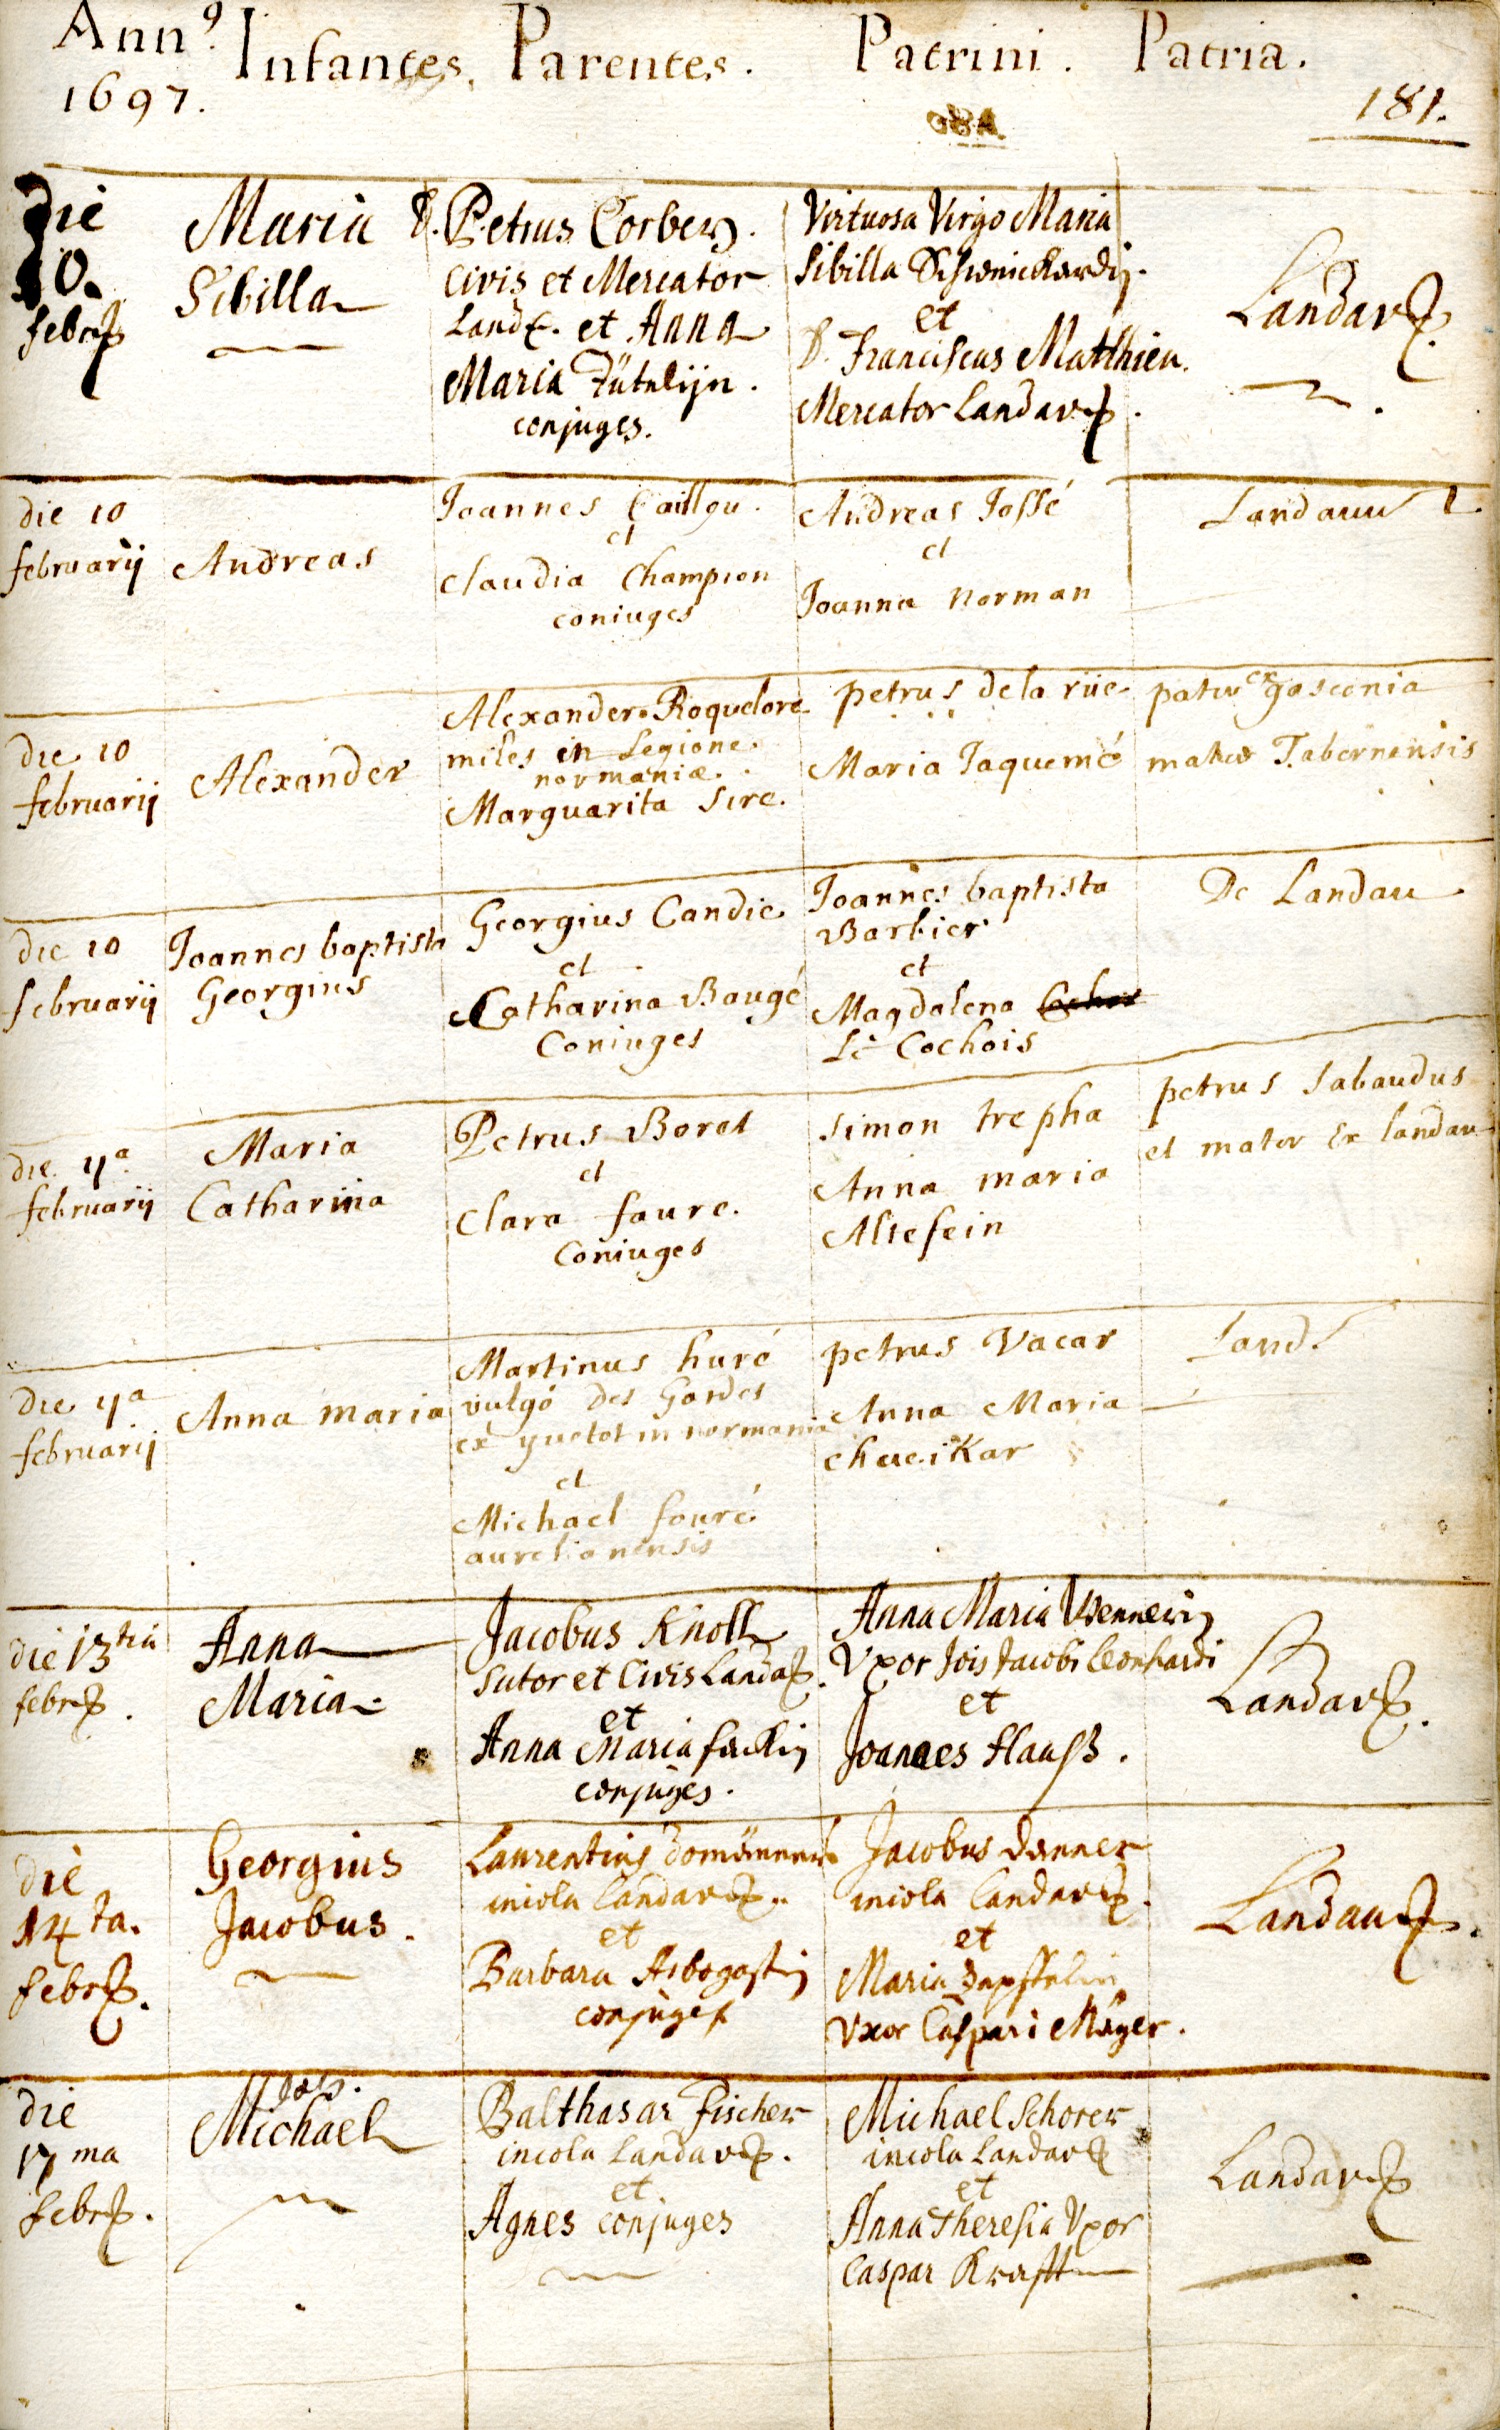 Ann⁹. Infantes. Parentes. Patrini. Patria.
1697.
181.
die
10.
febr
Maria
Sibilla
D. Petrus Corbers.
Civis et Mercator
Land. et Anna
Maria
conjuges.
Virtuosa Virgo Maria
Sibilla Schwenickardin.
et
D. Franciscus Matthieu.
Mercator Landav.
Landav.
die 10
februarij
Andreas
Joannes Caillou
et
Claudia Champion
coniuges
Andreas Jossé
et
Joanna Norman
Landauu
die 10
februarij
Alexander
Alexander Roquelore
miles in Legione
normaniæ.
Marguarita Sire.
petrus de la rüe
Maria Jaquemé
pater ex gasconia
mater Tabernensis
die 10
februarij
Joannes baptista
Georgius
Georgius Candie
et
Catharina Baugé
Coniuges
Joannes baptista
Barbier
et
Magdalena
Le Cochois
De Landau
die 11ª
februarij
Maria
Catharina
Petrus Borat
et
Clara faure.
Coniuges
Simon trepha
Anna maria
Altesein
petrus Sabaudus
et mater Ex landau
die 11ª
februarij
Anna maria
Martinus huré
vulgó des Gardes
ex yuetot in normania
et
Michael fouré
aurelianensis
petrus Vacar
Anna Maria
chueikar
Land.
die 13tia
febr.
Anna
Maria
Jacobus Knoll
Sutor et Civis Landa.
et
Anna Maria fackin
conjuges.
Anna Maria Wennerin
Vxor Jois Jacobi Leonhardi
et
Joannes Hauß.
Landav.
die
14ta.
febr.
Georgius
Jacobus.
Laurentius
incola Landav.
et
Barbara Arbogastin
conjuges
Jacobus Danner
incola Landav.
et
Maria Zapffelin
Vxor Caspari Mäyer.
Landau.
die
17ma
febr.
Joes.
Michael
Balthasar Fischer
incola Landav.
et
Agnes conjuges
Michael Schorer
incola Landav
et
Anna Theresia Vxor
Caspar Krafft
Landav